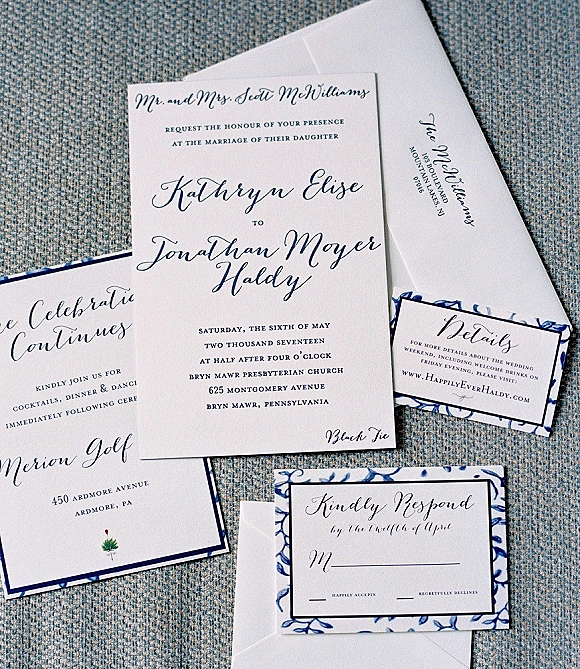 Mr. and Mrs. Scott McWilliams
REQUEST THE HONOUR OF YOUR PRESENCE
AT THE MARRIAGE OF THEIR DAUGHTER
Kathryn Elise
TO
Jonathan Moyer
Haldy
SATURDAY, THE SIXTH OF MAY
TWO THOUSAND SEVENTEEN
AT HALF AFTER FOUR O'CLOCK
BRYN MAWR PRESBYTERIAN CHURCH
625 MONTGOMERY AVENUE
BRYN MAWR, PENNSYLVANIA
Black Tie
The McWilliams
103 BOULEVARD
MOUNTAIN LAKES, NJ
07046
Details
FOR MORE DETAILS ABOUT THE WEDDING
WEEKEND, INCLUDING WELCOME DRINKS ON
FRIDAY EVENING, PLEASE VISIT:
WWW.HAPPILYEVERHALDY.COM
Celebratio
Continues
KINDLY JOIN US FOR
COCKTAILS, DINNER & DANCI
IMMEDIATELY FOLLOWING CERE
Merion Golf
450 ARDMORE AVENUE
ARDMORE, PA
Kindly Respond
by the twelfth of April
M
HAPPILY ACCEPTS REGRETFULLY DECLINES